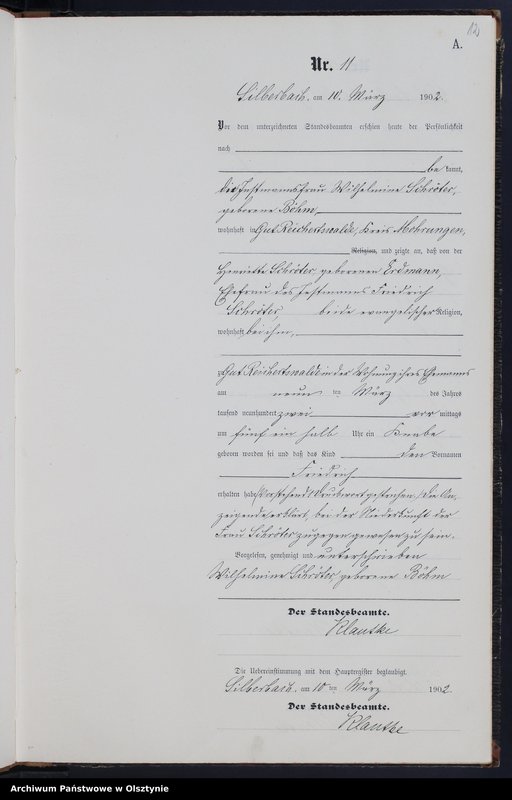 12
A.
Nr. 11
Silberbach, am 10. März 1902.
Vor dem unterzeichneten Standesbeamten erschien heute der Persönlichkeit
nach
be kannt,
die Instmannsfrau Wilhelmine Schröter,
geborene Böhm
wohnhaft in Gut Reichertswalde, Kreis Mohrungen,
Religion, und zeigte an, daß von der
Henriette Schröter geborenen Erdmann,
Ehefrau des Instmanns Friedrich
Schröter beide evangelischer Religion,
wohnhaft bei ihm,
zu Gut Reichertswalde in der Wohnung ihres Ehemanns
am neun ten März des Jahres
tausend neunhundert zwei vor mittags
um fünf ein halb Uhr ein Knabe
geboren worden sei und daß das Kind den Vornamen
Friedrich
erhalten habe. Vorstehend 1 Druckwort gestrichen. Die An-
zeigende erklärt, bei der Niederkunft der
Frau Schröter zugegen gewesen zu sein.
Vorgelesen, genehmigt und unterschrieben
Wilhelmine Schröter geborene Böhm
Der Standesbeamte.
Klautke
Die Uebereinstimmung mit dem Hauptregister beglaubigt.
Silberbach, am 10 ten März 1902.
Der Standesbeamte.
Klautke
Archiwum Państwowe w Olsztynie